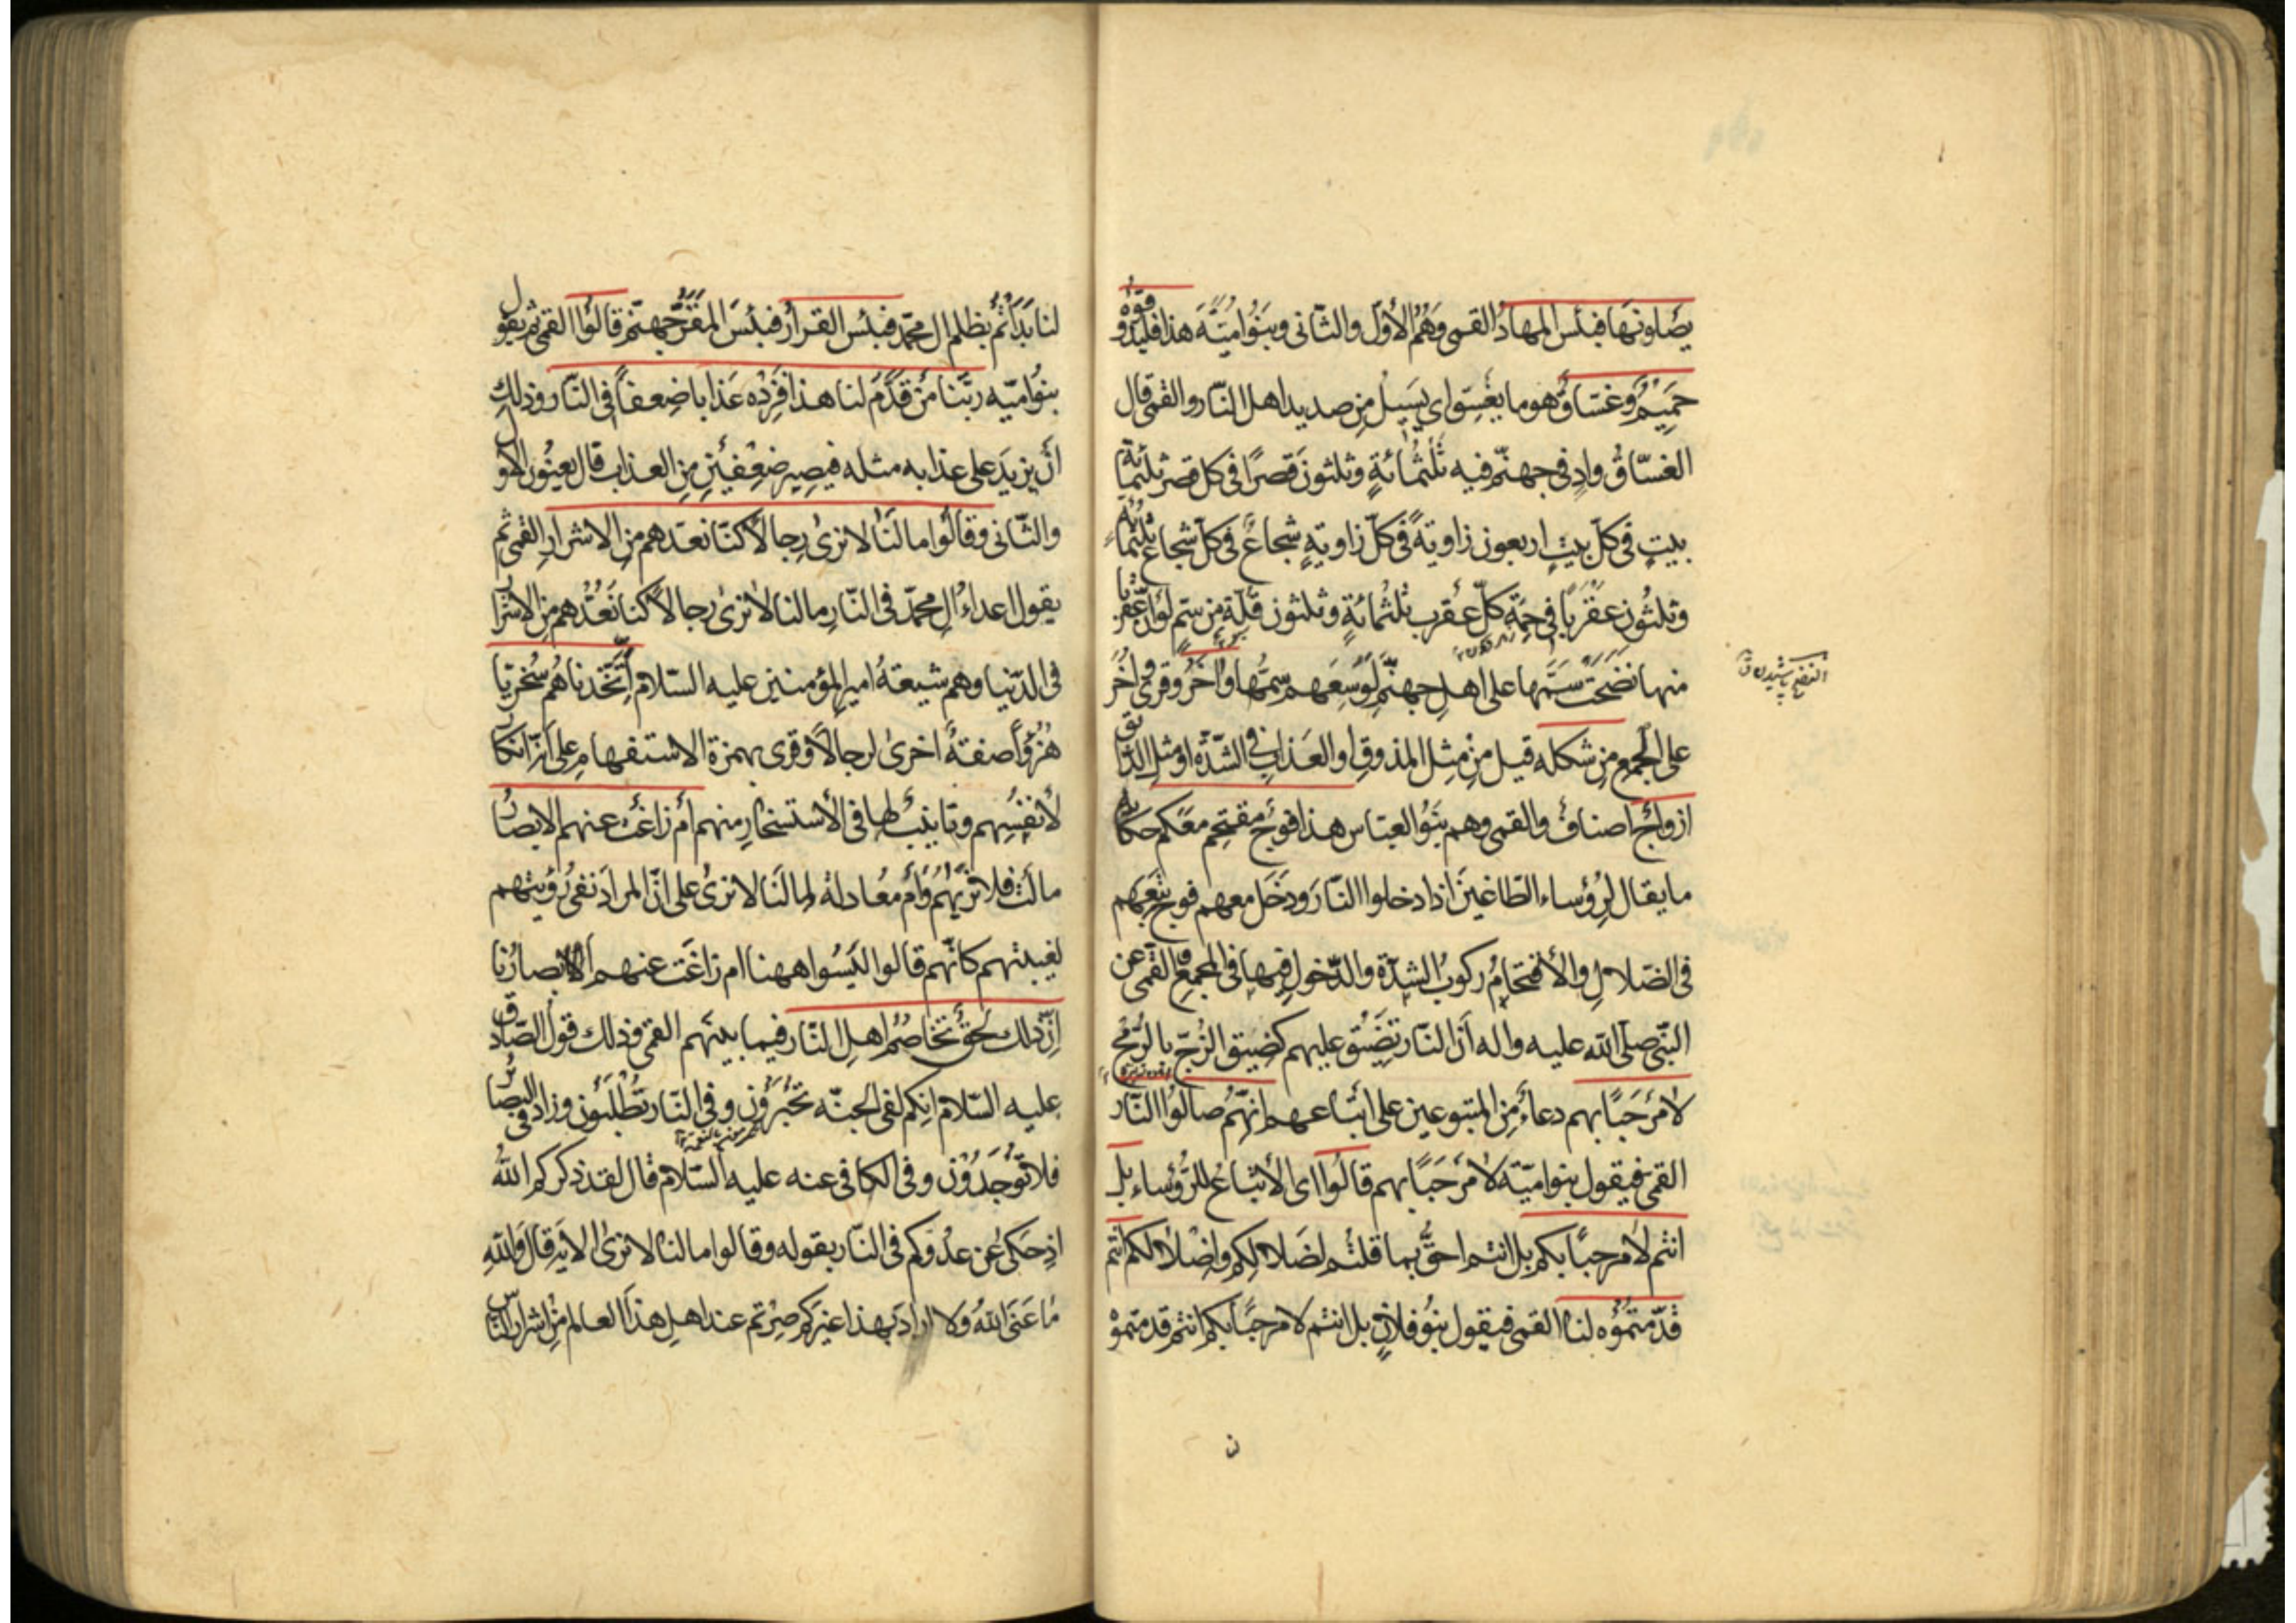 يصلونها فبئس المهاد القمى وهم الأول والثانى وبنو اميّة هذا فليذوقوه
حَمِيمٌ وغسّاقٌ هو ما يغسق اى يسيل من صديد اهل النّار والقمى قال
الغسّاق وادٍ فى جهنّم فيه ثلثمائةٍ وثلثون قصرًا فى كل قصر ثلثمائة
بيتٍ فى كلّ بيتٍ اربعون زاويةً فى كلّ زاويةٍ شجاعٌ فى كلّ شجاع ثلثمائة
وثلثون عقربًا فى حمة كلّ عقرب ثلثمائةٍ وثلثون قلّة من سمّ لو انّ عقربا
منها نضحت سمّها على اهل جهنّم لوسعهم سمّها واٰخر وقرئ اُخَر
النضح پاشيدن ق
على الجمع من شكله قيل من مثل المذوق او العذاب فى الشّدّة او مثل الذّائق
ازواج اصناف والقمى وهم بنو العباس هذا فوج مقتحم معكم حكاية
ما يقال لرؤساء الطاغين اذا دخلوا النّار ودخل معهم فوج تبعهم
فى الضلال والأقتحام ركوب الشدّة والدّخول فيها فى المجمع القمى عن
النّبى صلى الله عليه واله انّ النّار تضيق عليهم كضيق الزّجّ بالرّمح
لا مرحبًا بهم دعاء من المتبوعين على اتباعهم انّهم صالوا النّار
القمى فيقول بنو اميّة لا مرحبًا بهم قالوا اى الأتباع للرّؤساء بل
انتم لا مرحبًا بكم بل انتم احقّ بما قلتم لضلالكم واضلالكم انتم
قدّمتموه لنا القمى فيقول بنو فلانٍ بل انتم لا مرحبًا بكم انتم قدمتموه
لنا بدأتم بظلم ال محمّد فبئس القرار فبئس المقرّ جهنّم قالوا القمى ثم يقول
بنو اميّه ربّنا من قدّم لنا هذا فزده عذابا ضعفاً فى النّار وذلك
أن يزيد على عذابه مثله فيصير ضعفين من العذاب قال يعنون الاول
والثّانى وقالوا ما لنا لا نرىٰ رجالاً كنّا نعدّهم من الاشرار القمى ثم
يقول اعداء ال محمّد فى النّار ما لنا لا نرىٰ رجالاً كنا نعدّهم من الاشرار
فى الدّنيا وهم شيعة امير المؤمنين عليه السّلام أتّخذناهم سُخريّا
هُزُوًا صفةٌ اخرىٰ لرجالاً وقرئ بهمزة الاستفهام على انّه انكار
لأنفسهم وتانيب لها فى الأستسخار منهم أم زاغت عنهم الابصار
مالت فلا نريٰهم وأم معادلة لما لنا لا نرىٰ على انّ المراد نفى رؤيتهم
لغيبتهم كانّهم قالوا اليسوا ههنا ام زاغت عنهم ابصارنا
انّ ذلك لحقّ تخاصم اهل النّار فيما بينهم القمى وذلك قول الصّادق
عليه السّلام انكم لفى الجنّه تحبرون وفى النّار تطلبون وزاد فى البصائر
فلا توجدون وفى الكافى عنه عليه السّلام قال لقد ذكركم الله
اذ حكىٰ عن عدوّكم فى النّار بقوله وقالوا ما لنا لا نرىٰ الاية قال والله
ما عنى الله ولا اراد بهذا غيركم صرتم عند اهل هذا العالم من اشرار النّاس
ن